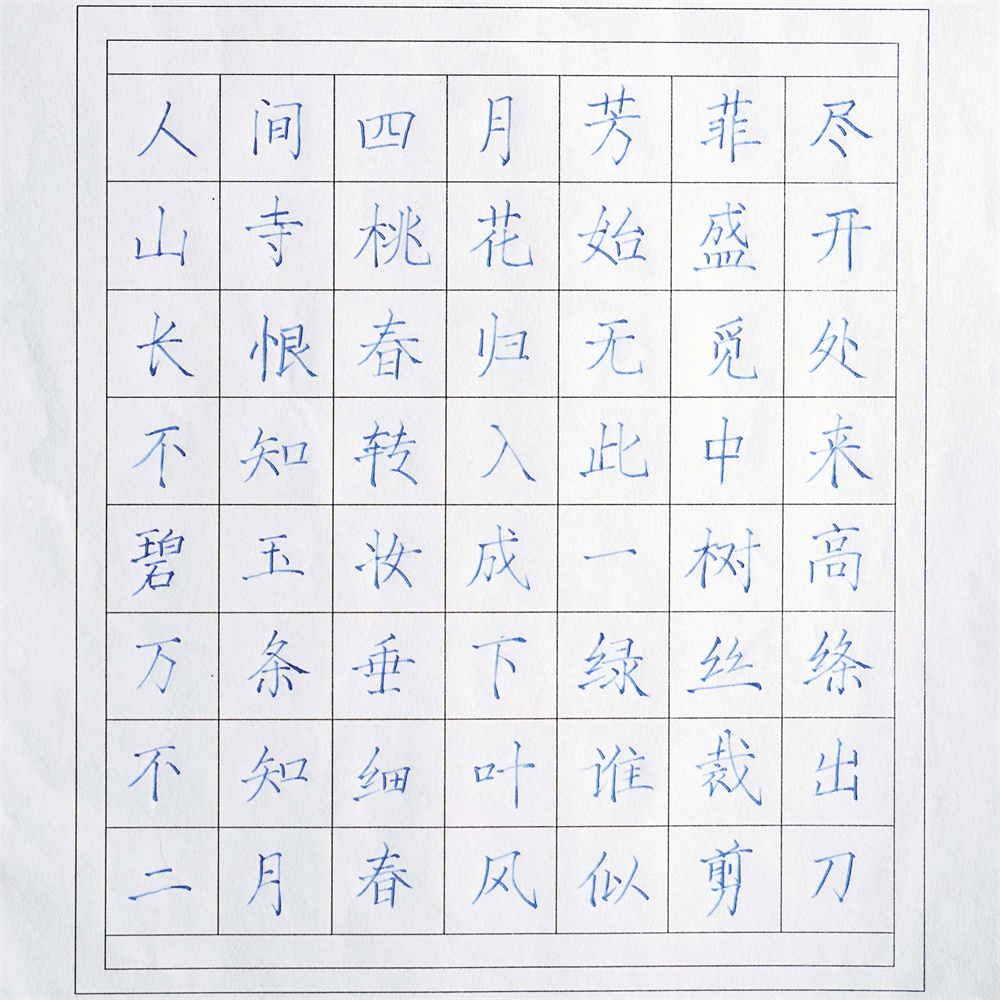 人间四月芳菲尽
山寺桃花始盛开
长恨春归无觅处
不知转入此中来
碧玉妆成一树高
万条垂下绿丝绦
不知细叶谁裁出
二月春风似剪刀